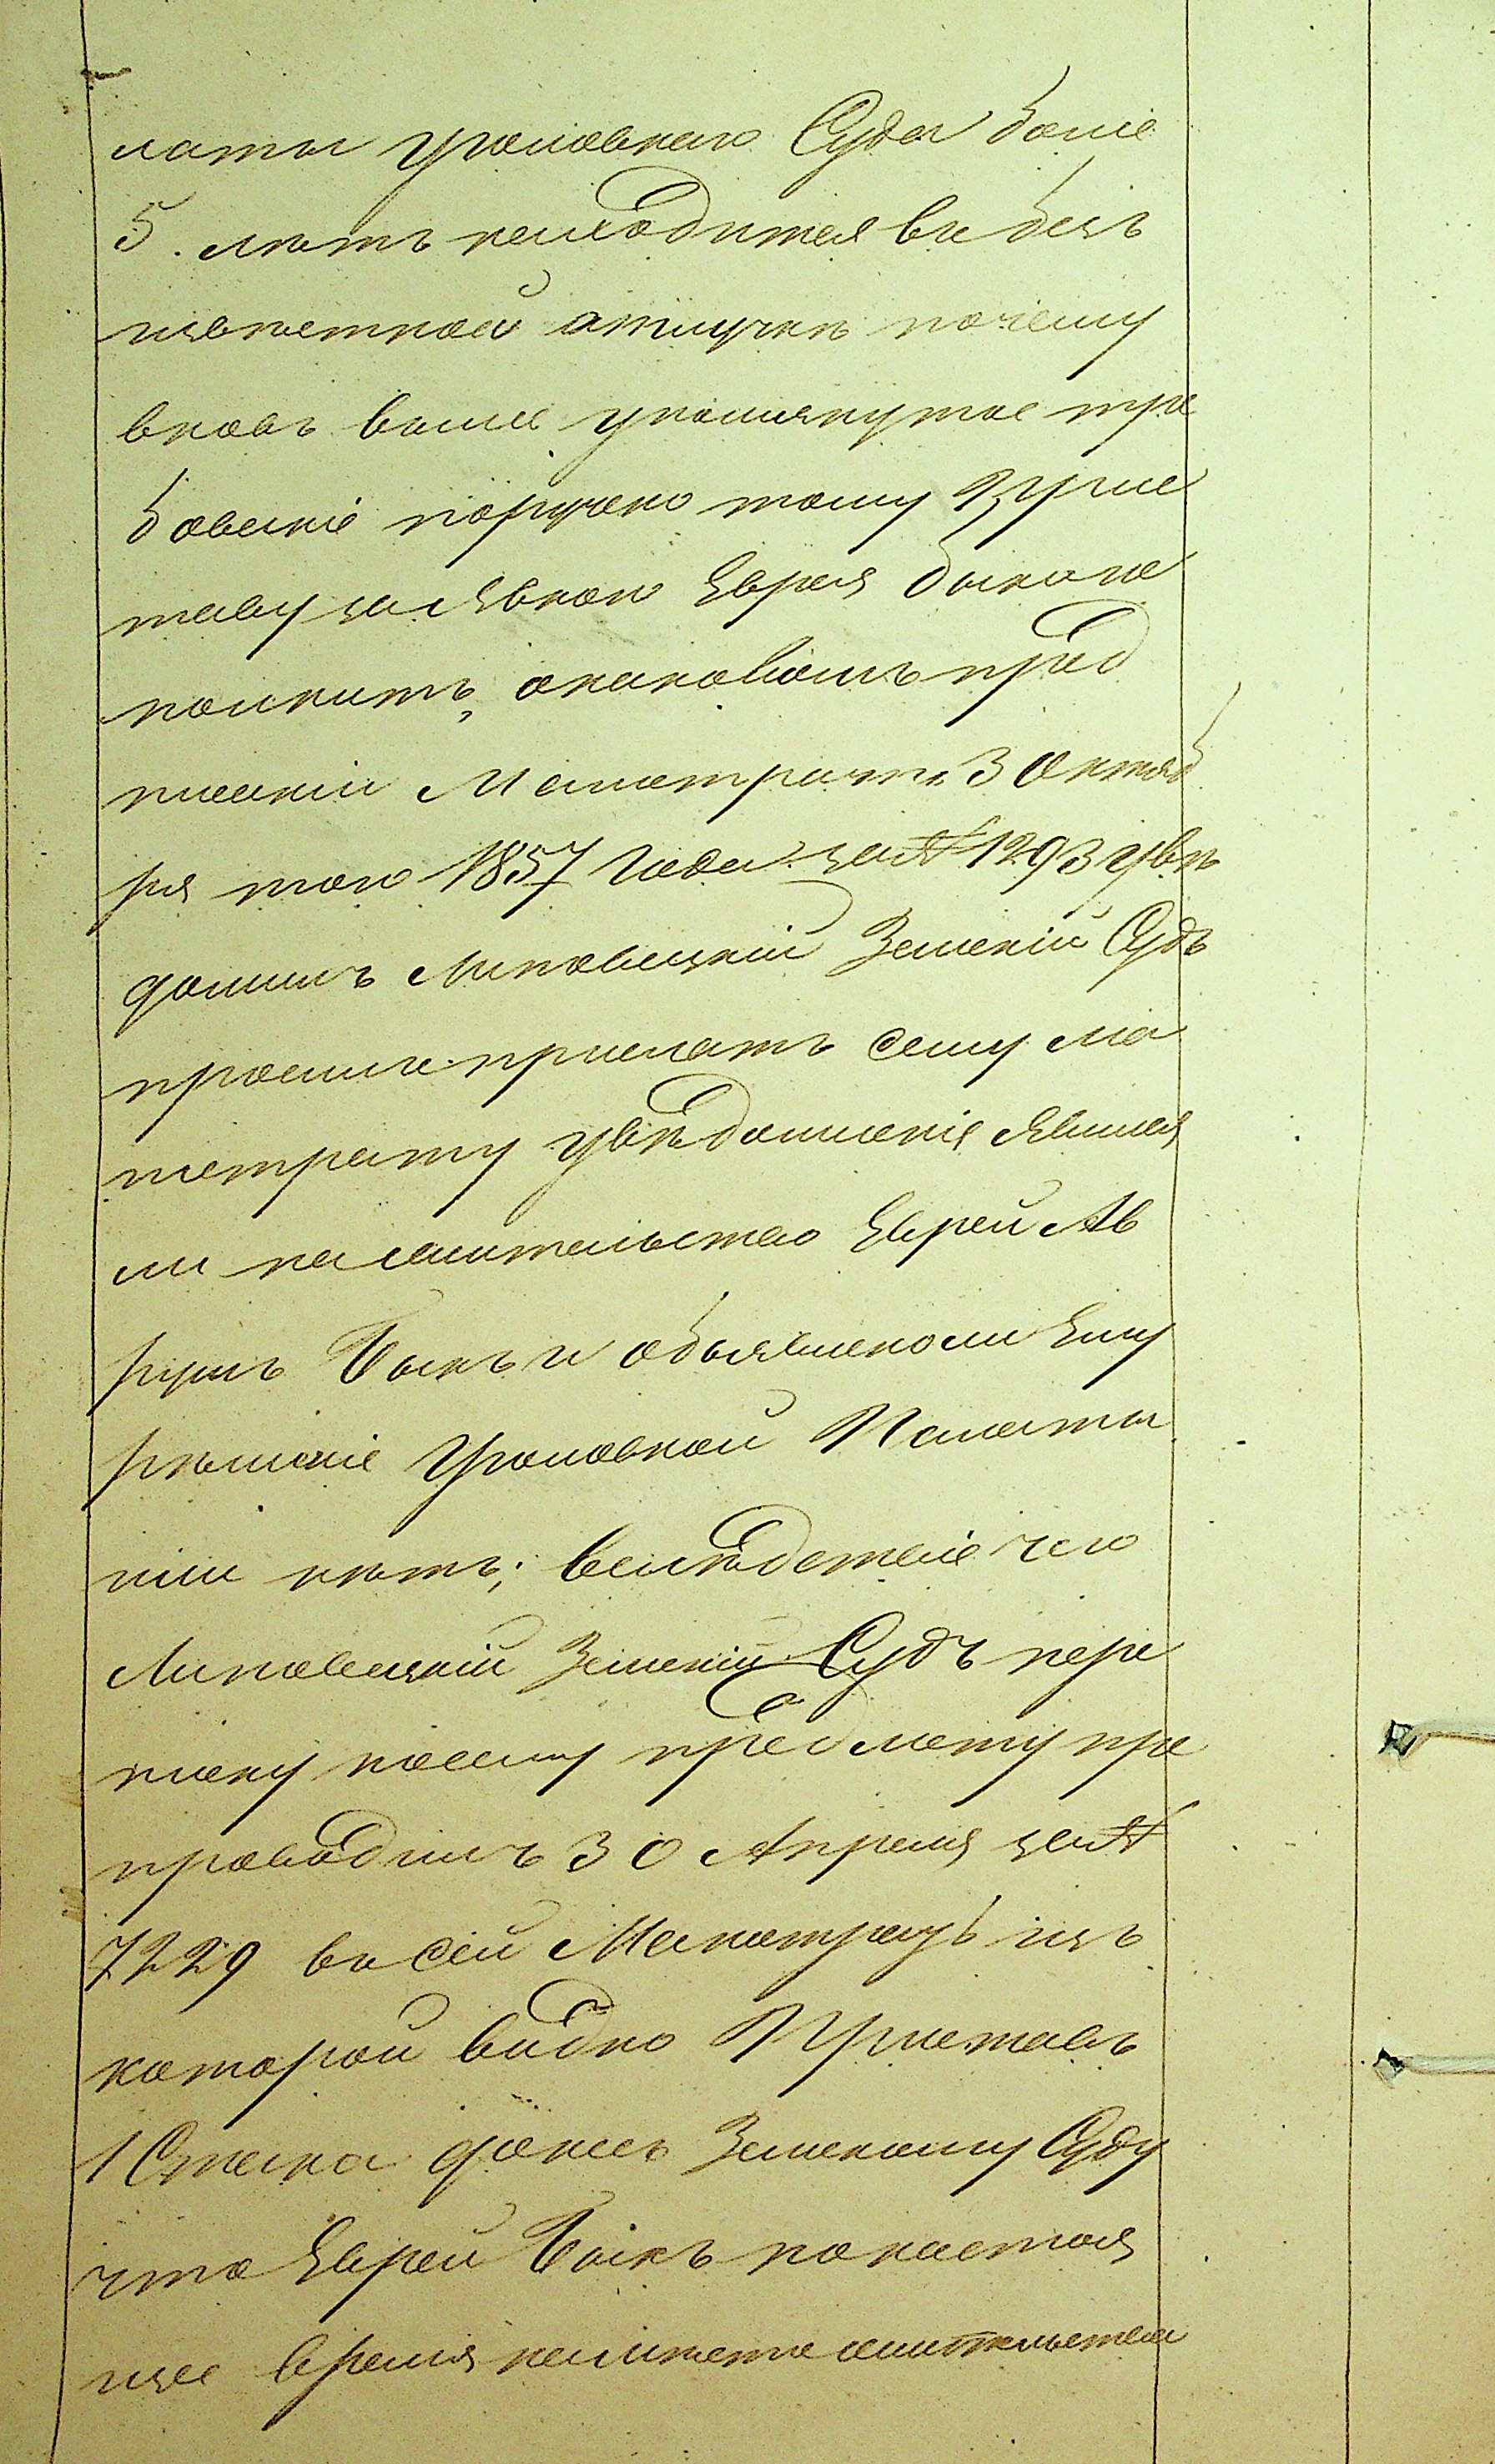 латы уголовнаго Суда боліе
5. летъ находится въ без
извѣстной отлучкѣ почему
вновь выше упомянутое тре
бованіе поручено тому Приcта
таву за явкою Еврея Быка ис
полнить, о каковомъ пред
писаніи Магистратъ 3 Октяб
ря того 1857 года за № 1293 увѣ
домилъ Липовецкій Земскій Судъ
просили прислать сему Ма
гистрату увѣдомленіе явился
ли на жительство Еврей Ав
румъ Быкъ и объявленоли Ему
рѣшеніе Уголовной Палаты
или нѣтъ; вслѣдствіе чего
Липовецкій Земскій Судъ пере
писку по сему предмету пре
проводилъ 30 Апреля за №
7229 въ сей Магистратъ изъ
которой видно Приставъ
1 Стана донесъ Земскому Суду
что Еврей Быкъ по настоя
щее время на жительство